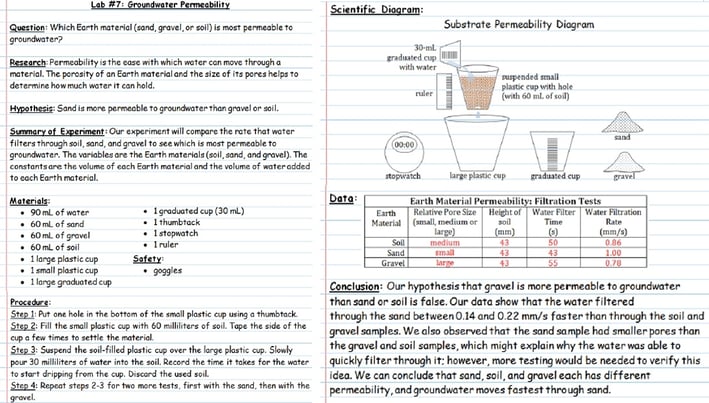 Lab #7: Groundwater Permeability
Question: Which Earth material (sand, gravel, or soil) is most permeable to
groundwater?
Research: Permeability is the ease with which water can move through a
material. The porosity of an Earth material and the size of its pores helps to
determine how much water it can hold.
Hypothesis: Sand is more permeable to groundwater than gravel or soil.
Summary of Experiment: Our experiment will compare the rate that water
filters through soil, sand, and gravel to see which is most permeable to
groundwater. The variables are the Earth materials (soil, sand, and gravel). The
constants are the volume of each Earth material and the volume of water added
to each Earth material.
Materials:
• 90 mL of water
• 60 mL of sand
• 60 mL of gravel
• 60 mL of soil
• 1 large plastic cup
• 1 small plastic cup
• 1 large graduated cup
• 1 graduated cup (30 mL)
• 1 thumbtack
• 1 stopwatch
• 1 ruler
Safety:
• goggles
Procedure:
Step 1: Put one hole in the bottom of the small plastic cup using a thumbtack.
Step 2: Fill the small plastic cup with 60 milliliters of soil. Tape the side of the
cup a few times to settle the material.
Step 3: Suspend the soil-filled plastic cup over the large plastic cup. Slowly
pour 30 milliliters of water into the soil. Record the time it takes for the water
to start dripping from the cup. Discard the used soil.
Step 4: Repeat steps 2-3 for two more tests, first with the sand, then with the
gravel.
Scientific Diagram:
Substrate Permeability Diagram
30-mL
graduated cup
with water
ruler
suspended small
plastic cup with hole
(with 60 mL of soil)
00:00
stopwatch
large plastic cup
graduated cup
sand
gravel
Data:
Earth Material Permeability: Filtration Tests
Earth Material Relative Pore Size (small, medium or large) Height of soil (mm) Water Filter Time (s) Water Filtration Rate (mm/s)
Soil medium 43 50 0.86
Sand small 43 43 1.00
Gravel large 43 55 0.78
Conclusion: Our hypothesis that gravel is more permeable to groundwater
than sand or soil is false. Our data show that the water filtered
through the sand between 0.14 and 0.22 mm/s faster than through the soil and
gravel samples. We also observed that the sand sample had smaller pores than
the gravel and soil samples, which might explain why the water was able to
quickly filter through it; however, more testing would be needed to verify this
idea. We can conclude that sand, soil, and gravel each has different
permeability, and groundwater moves fastest through sand.